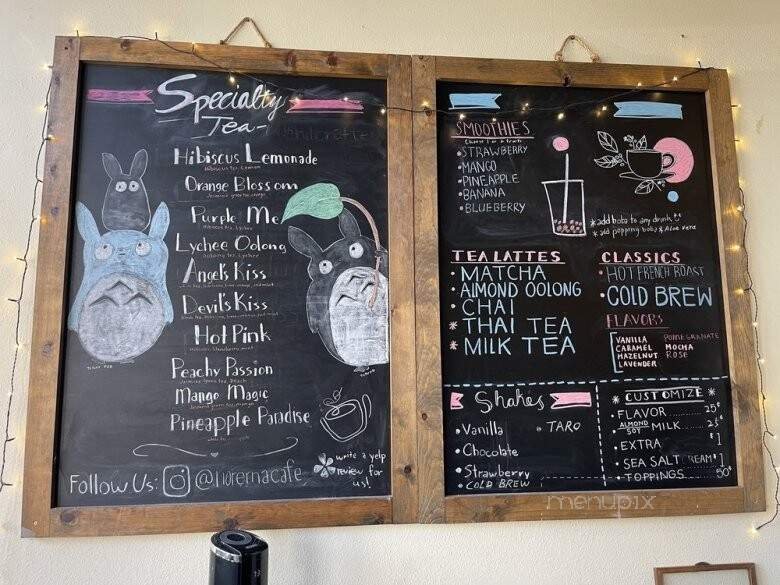 Specialty
Tea-
Hibiscus Lemonade
Hibiscus tea, Lemon
Orange Blossom
Purple Me
Hibiscus tea, Lychee
Lychee Oolong
Oolong tea, Lychee
Angel's Kiss
Devil's Kiss
Hot Pink
Peachy Passion
Jasmine green tea, Peach
Mango Magic
Pineapple Paradise
Follow Us:
write a yelp
review for
us!
SMOOTHIES
• STRAWBERRY
• MANGO
• PINEAPPLE
• BANANA
• BLUEBERRY
* add boba to any drink
* add popping boba * Aloe Vera
TEA LATTES
• MATCHA
• ALMOND OOLONG
• CHAI
* THAI TEA
* MILK TEA
CLASSICS
• HOT FRENCH ROAST
• COLD BREW
FLAVORS
VANILLA
CARAMEL
HAZELNUT
LAVENDER
POMEGRANATE
MOCHA
ROSE
Shakes
• Vanilla
• TARO
• Chocolate
• Strawberry
COLD BREW
* CUSTOMIZE *
• FLAVOR ........ 25¢
• ALMOND SOY MILK .... 25¢
• EXTRA $1
• SEA SALT CREAM $1
• TOPPINGS ..... 50¢
menupix